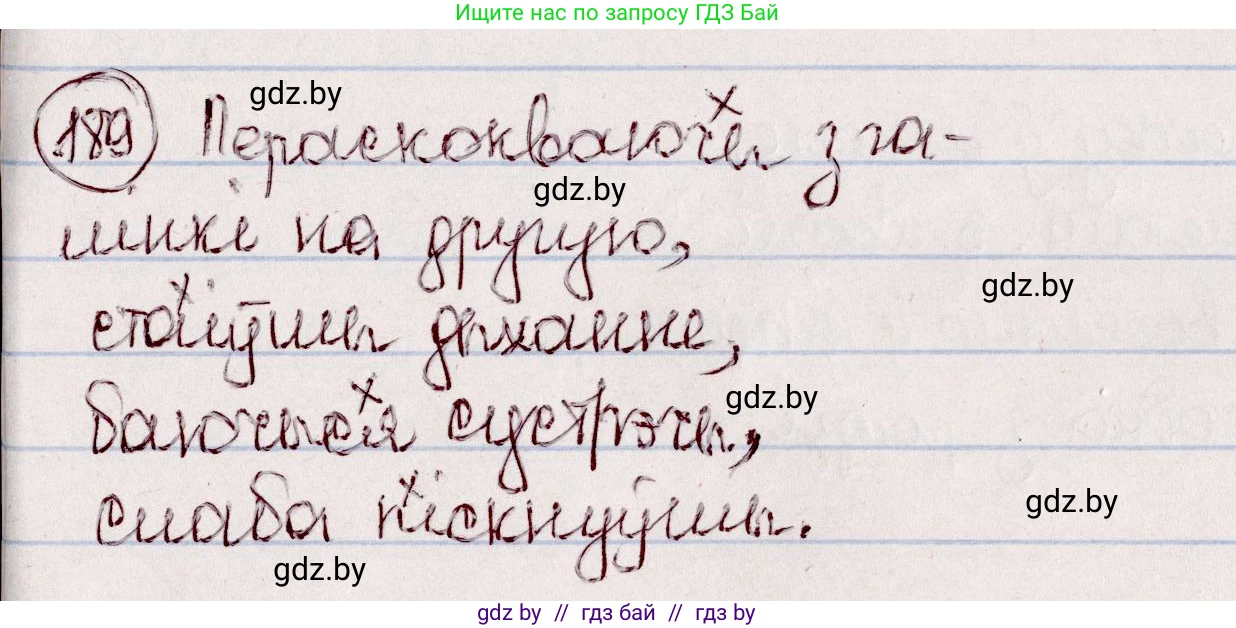 Ищите нас по запросу ГДЗ Бай
189 Пераскокваючы з га-
лінкі на другую,
стаіўшы дыханне,
баючыся сустрэчы,
слаба піскнуўшы.
gdz.by
gdz.by
gdz.by
gdz.by
gdz.by
gdz.by
gdz by // гдз бай // гдз by